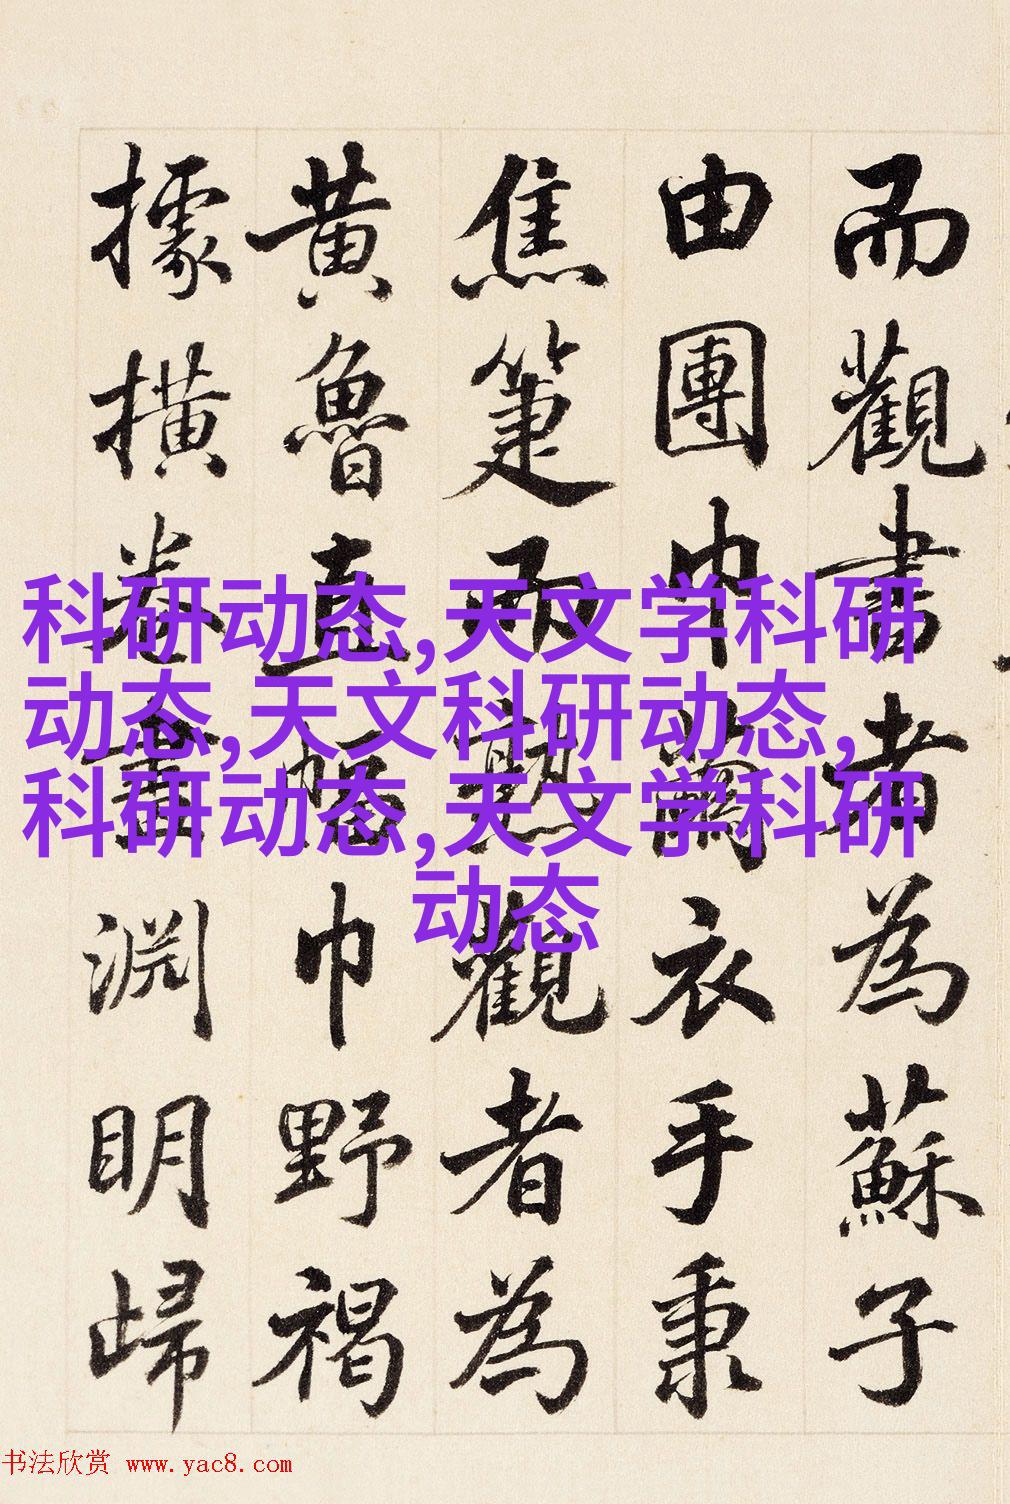 而觀書者為蘇子
由團巾繭衣手秉
焦箑而熟觀者為
黃魯直幅巾野褐
據撗卷畫淵明歸
科研动态,天文学科研
动态,天文科研动态,
科研动态,天文学科研
动态
书法欣赏 www.yac8.com